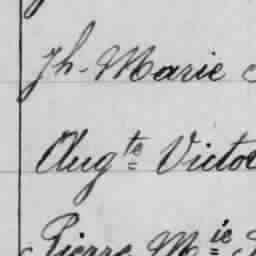 Jh-Marie
Augte Victor
Pierre Mie